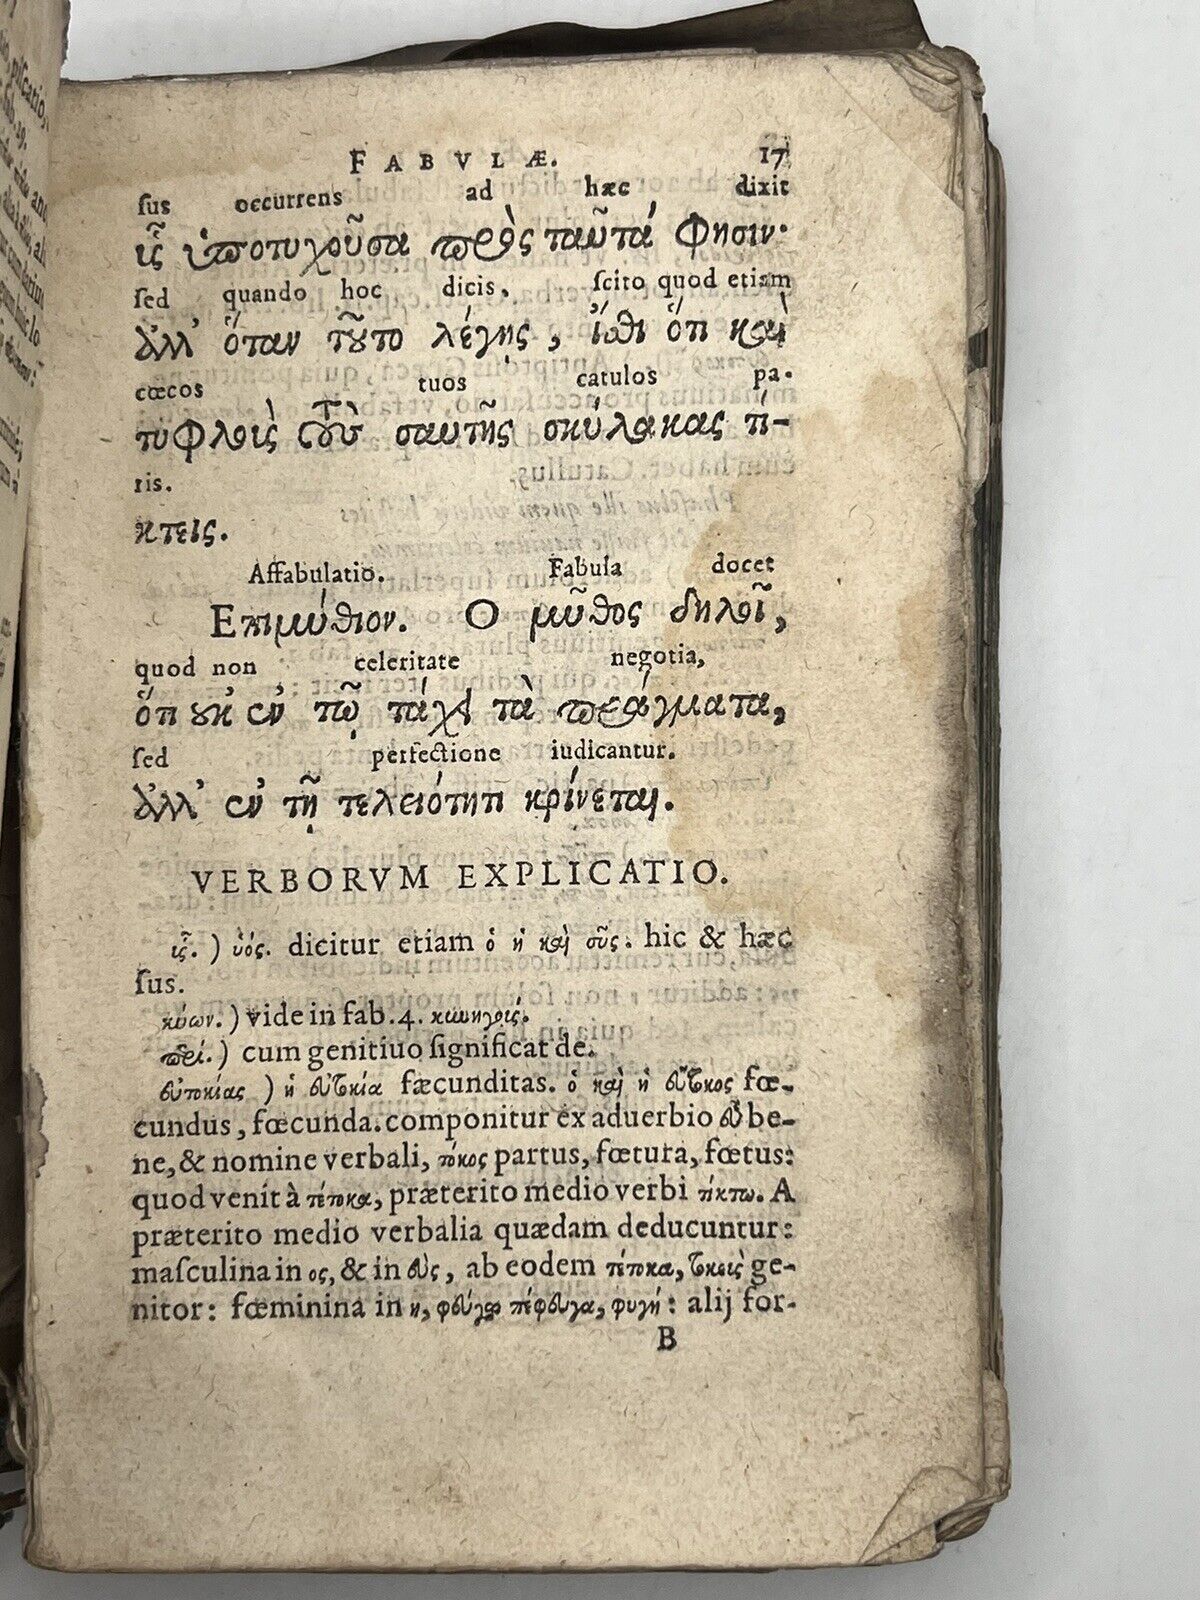 FABVLÆ. 17
sus occurrens ad hæc dixit
ὗς ὑποτυχοῦσα πρὸς ταῦτά φησιν·
sed quando hoc dicis. scito quod etiam
ἀλλ' ὅταν τοῦτο λέγῃς, ἴσθι ὅτι καὶ
cœcos tuos catulos pa-
τυφλοὺς τοὺς σαυτῆς σκύλακας τί-
ris.
κτεις.
Affabulatio. Fabula docet
Επιμύθιον. Ο μῦθος δηλοῖ,
quod non celeritate negotia,
ὅτι οὐκ ἐν τῷ τάχει τὰ πράγματα,
sed perfectione iudicantur.
ἀλλ' ἐν τῇ τελειότητι κρίνεται.
VERBORVM EXPLICATIO.
ὗς. ) ὑός. dicitur etiam ὁ ἡ καὶ σῦς. hic & hæc
ſus.
κύων. ) vide in fab. 4. κυνηγοῖς.
περί. ) cum genitiuo ſignificat de.
εὐτοκίας ) ἡ εὐτοκία fæcunditas. ὁ καὶ ἡ εὔτοκος fœ-
cundus, fœcunda. componitur ex aduerbio εὖ be-
ne, & nomine verbali, τόκος partus, fœtura, fœtus:
quod venit à τέτοκα, præterito medio verbi τίκτω. A
præterito medio verbalia quædam deducuntur:
maſculina in ος, & in εὺς, ab eodem τέτοκα, τοκεὺς ge-
nitor: fœminina in η, φεύγω πέφευγα, φυγή: alij for-
B